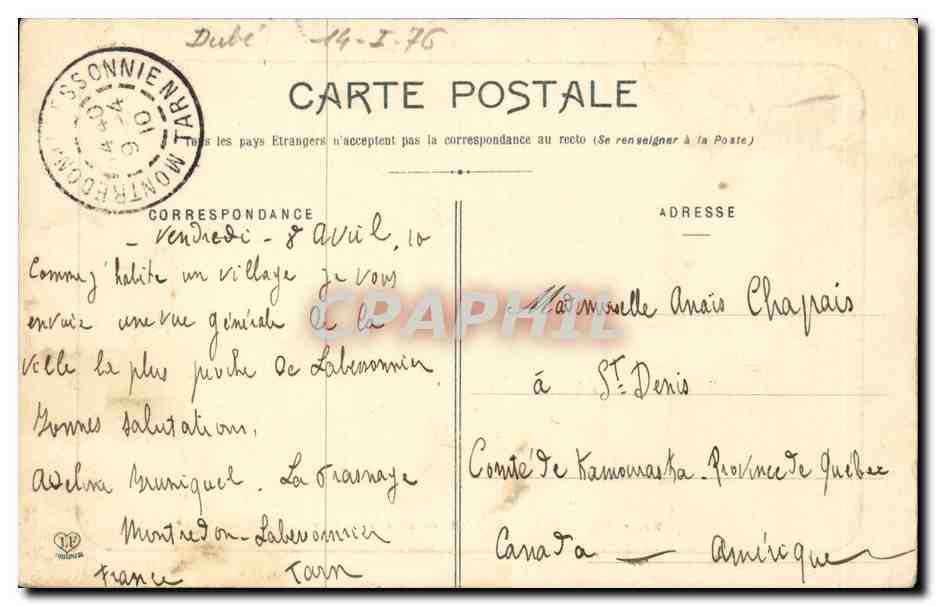 Dubé 14-I-76
CARTE POSTALE
Tous les pays Etrangers n'acceptent pas la correspondance au recto (Se renseigner à la Poste)
MONTREDON-LABESSONNIE TARN
9 -4
10
CORRESPONDANCE
- Vendredi - 8 avril, 10
Comme j'habite un village je vous
envoie une vue générale de la
ville la plus proche de Labessonnier
Bonnes salutations,
Adelina Bruniquel. La Frasnaye
Montredon-Labessonnier
France Tarn
ADRESSE
Mademoiselle Anaïs Chapais
à St. Denis
Comté de Kamouraska. Province de Québec
Canada — Amérique
CPAPHIL